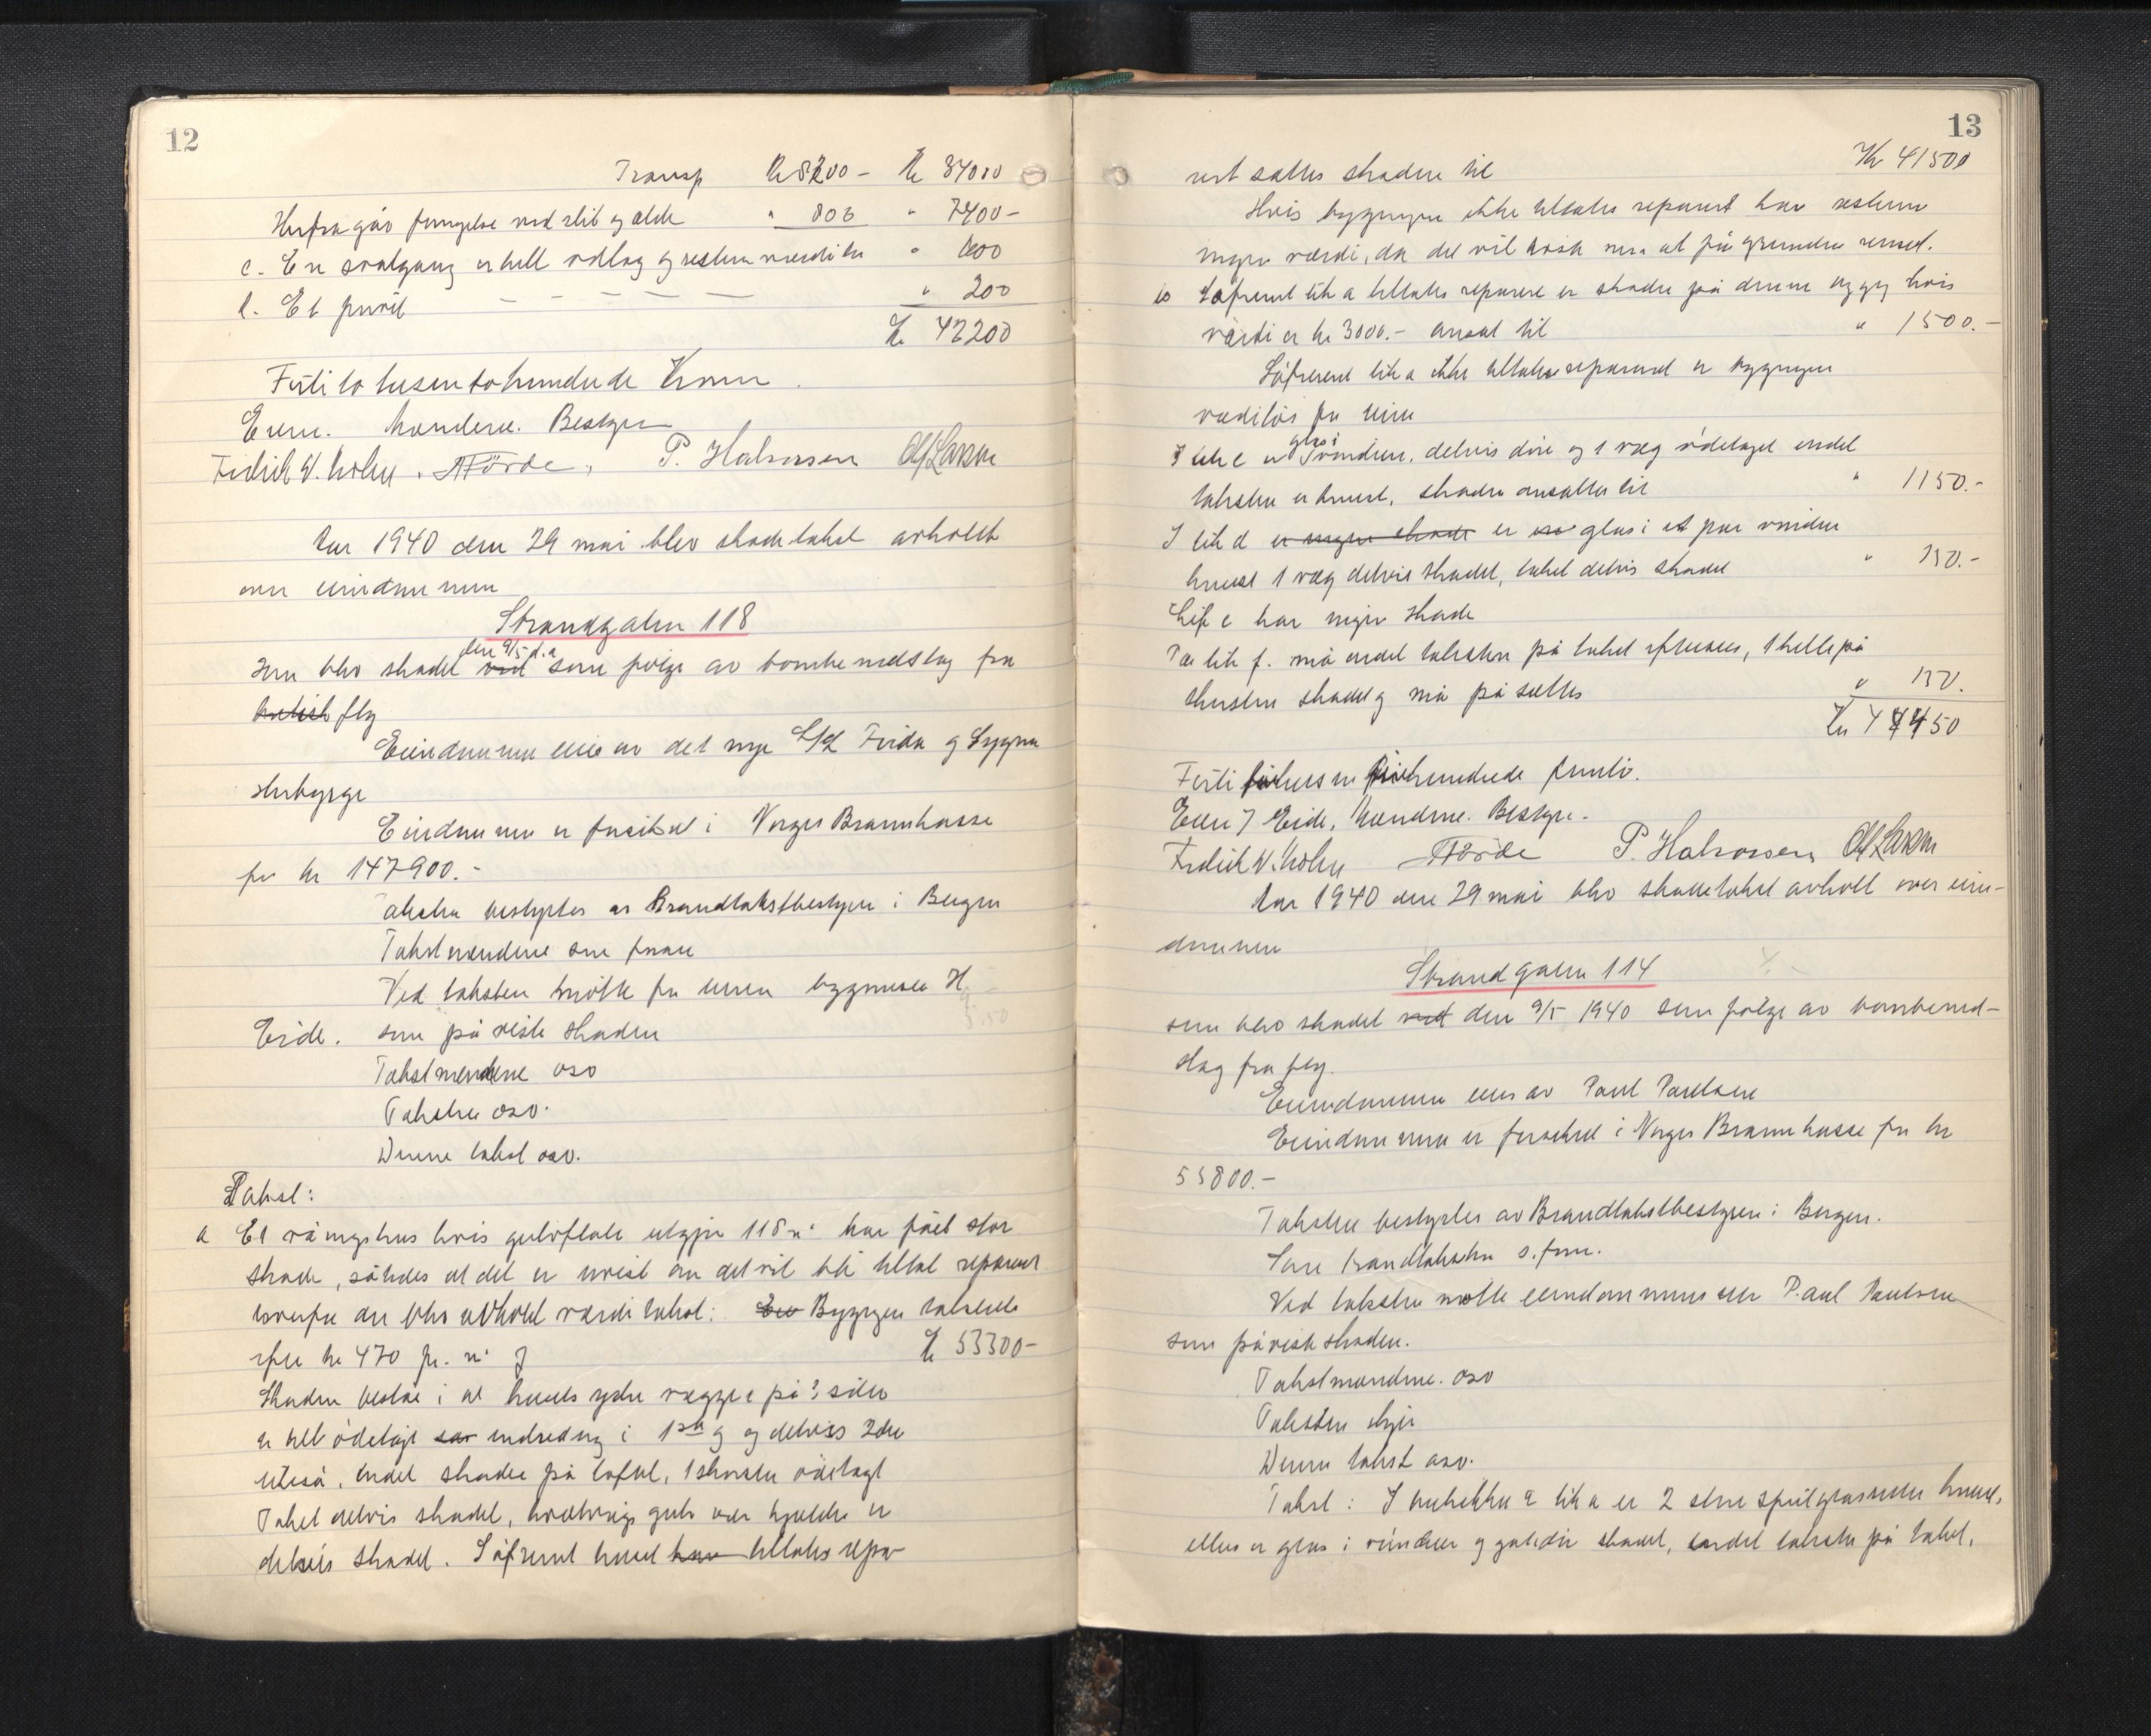 12
Transp Kr 8200 – Kr 34000
Herfra går forringelse ved slit og ælde " 800 " 7400 –
c. En svalgang er helt ødlagt og resten værdiløs " 600
d. Et privet – – – – – " 200
Kr 42200
Førtito tusen to hundrede Kroner.
Eieren. Mændene. Bestyrer
Fridrik W. . Førde. P. Halvorsen Olaf Larsen
Aar 1940 den 29 mai blev skadetakst avholdt
over eiendommen
Strandgaten 118
den 9/5 d.a
som blev skadet ved som følge av bombenedslag fra
britisk fly
Eiendommen eies av det nye S/L Firda og Sygna
Eiendommen er forsikret i Norges Brannkasse
for kr 147900.-
Taksten bestyrtes av Brandtakstbestyrer i Bergen
Takstmændene som foran
Ved taksten møtte for eieren byggmester H
Eide. som påviste skaden
Takstmændene osv
Taksten osv.
Denne takst osv.
Takst:
a Et våningshus hvis gulvflate utgjør 118 m² har fået stor
skade, således at det er uvist om det vil bli tillat reparert
hvorfor der blev avholdt værditakst: Em Bygningen takseres
efter kr 470 pr. m² Kr 53300 –
Skaden består i at husets ydre vægger på 3 sider
er helt ødelagt sam indredning i 1ste etg og delvis 2den
Likeså, endel skade på loftet, 1 skorsten ødelagt
Taket delvis skadet, gulv over kjelder er
delvis skadet. Såfremt huset kan tillates repa-
13
Kr 41500
rert sættes skaden til
Hvis bygningen ikke tillates reparert har restene
ingen værdi, da det vil koste mer at få grunden renset.
b Såfremt lit. a tillates reparert er skaden på denne bygg hvis
værdi er kr 3000.- ansat til " 1500.-
Såfremt lit a ikke tillates reparert er bygningen
værdiløs for eieren
glas i
I lit c er vinduer, delvis døre og 1 væg ødelagt endel
taksten er knust, skaden ansættes til " 1150.-
I lit d er ingen skade er no glas i et par vinduer
knust 1 væg delvis skadet, taket delvis skadet " 150.-
Lit e har ingen skade
Paa lit f. må endel taksten på taket efterses, 1 helle på
skorsten skadet og må påsættes " 150.
Kr 44450
Førti firetusen firehundrede femti.
Eier J Eide, Mændene. Bestyrer.
Fridrik W. Førde P. Halvorsen Olaf Larsen
Aar 1940 den 29 mai blev skadetakst avholdt over eien-
dommen
Strandgaten 114
som blev skadet ved den 9/5 1940 som følge av bombened-
slag fra fly.
Eiendommen eies av Paul Paulsen
Eiendommen er forsikret i Norges Brannkasse for kr
55800.-
Taksten bestyrtes av Brandtakstbestyrer i Bergen.
Som brandtaksten s. form.
Ved taksten møtte eiendommens eier Paul Paulsen
som påviste skaden.
Takstmændene. osv
Taksten utgjør
Denne takst osv.
Takst: I butikken i lit a er 2 store speilglasruter knust,
ellers er glas i vinduer og gatedør skadet, endel taksten på taket.